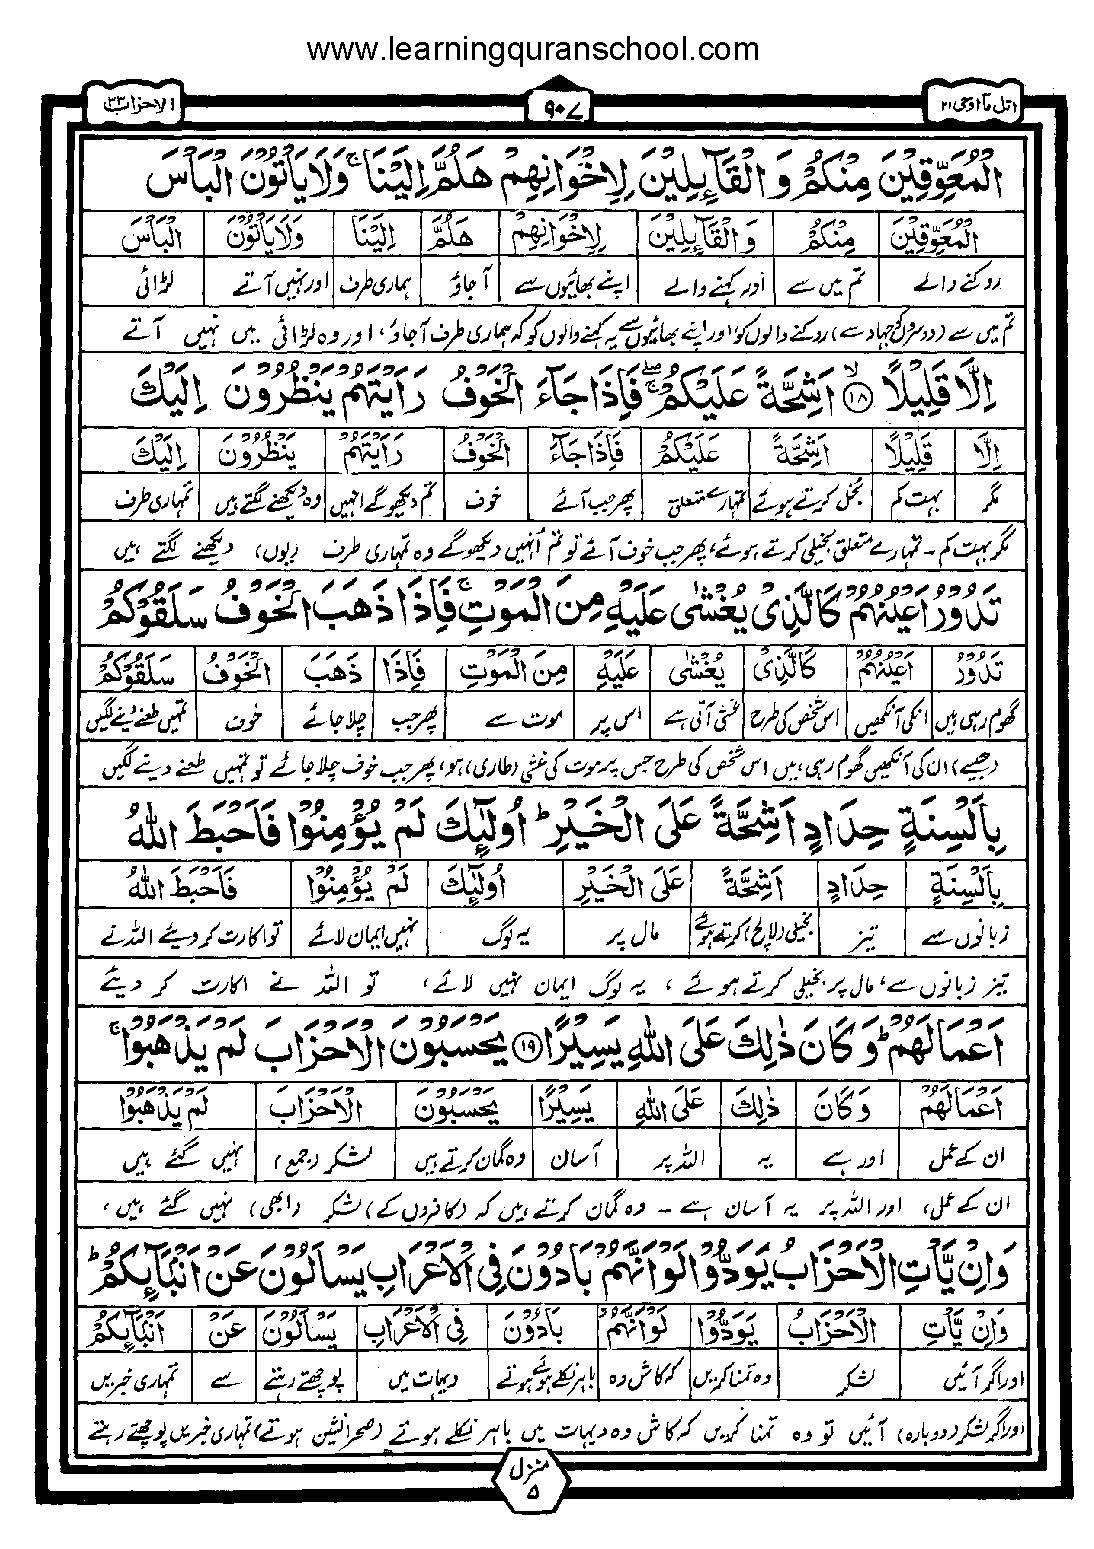 www.learningquranschool.com
اتل مآ اوحی ۲۱ ۹۰۷ الاحزاب ۳۳
الْمُعَوِّقِيْنَ مِنْكُمْ وَ الْقَآئِلِيْنَ لِاِخْوَانِهِمْ هَلُمَّ اِلَيْنَا ۚ وَلَا يَاْتُوْنَ الْبَاْسَ
الْمُعَوِّقِيْنَ مِنْكُمْ وَ الْقَآئِلِيْنَ لِاِخْوَانِهِمْ هَلُمَّ اِلَيْنَا وَلَا يَاْتُوْنَ الْبَاْسَ
روکنے والے تم میں سے اور کہنے والے اپنے بھائیوں سے آجاؤ ہماری طرف اور نہیں آتے لڑائی
تم میں سے (دوسروں کو جہاد سے) روکنے والوں کو، اور اپنے بھائیوں سے یہ کہنے والوں کو کہ ہماری طرف آجاؤ، اور وہ لڑائی میں نہیں آتے
اِلَّا قَلِيْلًا ۙ﴿۱۸﴾ اَشِحَّةً عَلَيْكُمْ ۖۚ فَاِذَا جَآءَ الْخَوْفُ رَاَيْتَهُمْ يَنْظُرُوْنَ اِلَيْكَ
اِلَّا قَلِيْلًا اَشِحَّةً عَلَيْكُمْ فَاِذَا جَآءَ الْخَوْفُ رَاَيْتَهُمْ يَنْظُرُوْنَ اِلَيْكَ
مگر بہت کم بخل کرتے ہوئے تمہارے متعلق پھر جب آئے خوف تم دیکھو گے انہیں وہ دیکھنے لگتے ہیں تمہاری طرف
مگر بہت کم۔ تمہارے متعلق بخیلی کرتے ہوئے، پھر جب خوف آئے تو تم اُنہیں دیکھو گے وہ تمہاری طرف (یوں) دیکھنے لگتے ہیں
تَدُوْرُ اَعْيُنُهُمْ كَالَّذِىْ يُغْشٰى عَلَيْهِ مِنَ الْمَوْتِ ۚ فَاِذَا ذَهَبَ الْخَوْفُ سَلَقُوْكُمْ
تَدُوْرُ اَعْيُنُهُمْ كَالَّذِىْ يُغْشٰى عَلَيْهِ مِنَ الْمَوْتِ فَاِذَا ذَهَبَ الْخَوْفُ سَلَقُوْكُمْ
گھوم رہی ہیں انکی آنکھیں اس شخص کی طرح غشی آتی ہے اس پر موت سے پھر جب چلا جائے خوف تمہیں طعنے دینے لگیں
(جیسے) ان کی آنکھیں گھوم رہی ہیں اس شخص کی طرح جس پر موت کی غشی (طاری) ہو، پھر جب خوف چلا جائے تو تمہیں طعنے دینے لگیں
بِاَلْسِنَةٍ حِدَادٍ اَشِحَّةً عَلَى الْخَيْرِ ؕ اُولٰٓئِكَ لَمْ يُؤْمِنُوْا فَاَحْبَطَ اللّٰهُ
بِاَلْسِنَةٍ حِدَادٍ اَشِحَّةً عَلَى الْخَيْرِ اُولٰٓئِكَ لَمْ يُؤْمِنُوْا فَاَحْبَطَ اللّٰهُ
زبانوں سے تیز بخیلی (لالچ) کرتے ہوئے مال پر یہ لوگ نہیں ایمان لائے تو اکارت کر دیئے اللہ نے
تیز زبانوں سے، مال پر بخیلی کرتے ہوئے، یہ لوگ ایمان نہیں لائے، تو اللہ نے اکارت کر دیئے
اَعْمَالَهُمْ ؕ وَ كَانَ ذٰلِكَ عَلَى اللّٰهِ يَسِيْرًا ﴿۱۹﴾ يَحْسَبُوْنَ الْاَحْزَابَ لَمْ يَذْهَبُوْا ۚ
اَعْمَالَهُمْ وَ كَانَ ذٰلِكَ عَلَى اللّٰهِ يَسِيْرًا يَحْسَبُوْنَ الْاَحْزَابَ لَمْ يَذْهَبُوْا
ان کے عمل اور ہے یہ اللہ پر آسان وہ گمان کرتے ہیں لشکر (جمع) نہیں گئے ہیں
ان کے عمل، اور اللہ پر یہ آسان ہے۔ وہ گمان کرتے ہیں کہ (کافروں کے) لشکر (ابھی) نہیں گئے ہیں،
وَ اِنْ يَّاْتِ الْاَحْزَابُ يَوَدُّوْا لَوْ اَنَّهُمْ بَادُوْنَ فِى الْاَعْرَابِ يَسْاَلُوْنَ عَنْ اَنْۢبَآئِكُمْ ؕ
وَ اِنْ يَّاْتِ الْاَحْزَابُ يَوَدُّوْا لَوْ اَنَّهُمْ بَادُوْنَ فِى الْاَعْرَابِ يَسْاَلُوْنَ عَنْ اَنْۢبَآئِكُمْ
اور اگر آئیں لشکر وہ تمنا کریں کہ کاش وہ باہر نکلے ہوئے ہوتے دیہات میں پوچھتے رہتے سے تمہاری خبریں
اور اگر لشکر (دوبارہ) آئیں تو وہ تمنا کریں کہ کاش وہ دیہات میں باہر نکلے ہوتے (صحرانشین ہوتے) تمہاری خبریں پوچھتے رہتے
منزل ۵